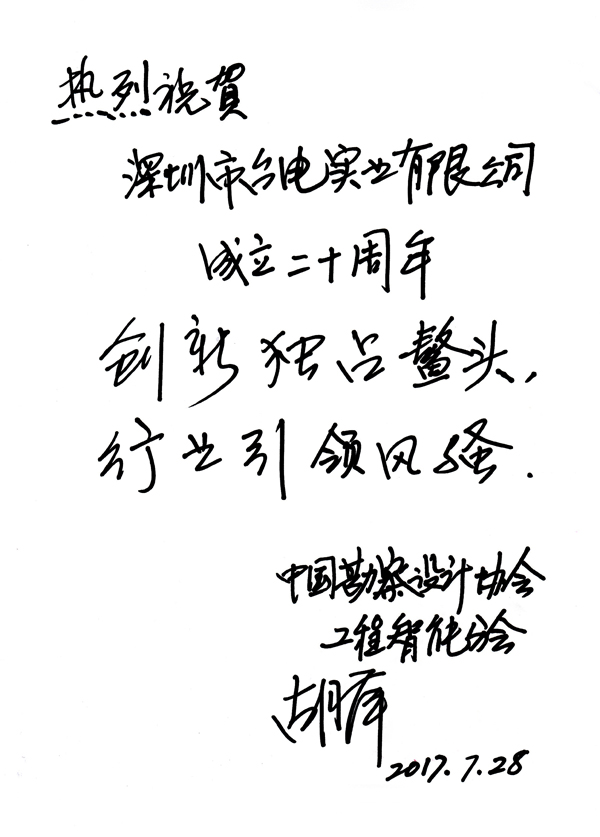 热烈祝賀
深圳市台电实业有限公司
成立二十周年
创新独占鳌头，
行业引领风骚.
中国勘察设计协会
工程智能分会
胡
2017.7.28